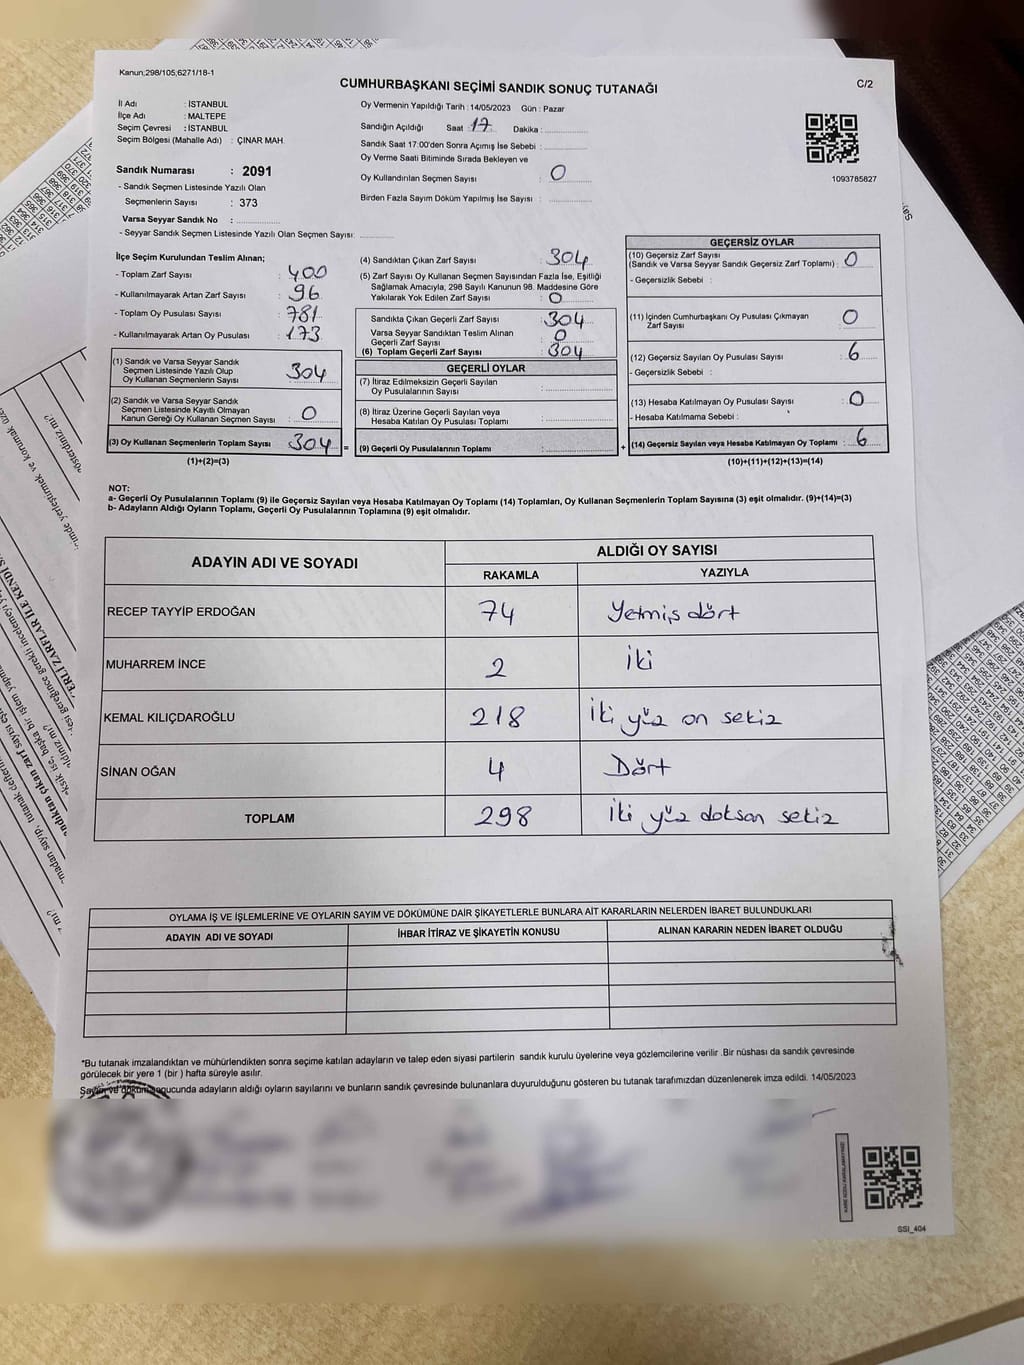 Kanun;298/105,6271/18-1
CUMHURBAŞKANI SEÇİMİ SANDIK SONUÇ TUTANAĞI
C/2
İl Adı : İSTANBUL
İlçe Adı : MALTEPE
Seçim Çevresi : İSTANBUL
Seçim Bölgesi (Mahalle Adı) : ÇINAR MAH.
Sandık Numarası : 2091
- Sandık Seçmen Listesinde Yazılı Olan
Seçmenlerin Sayısı : 373
Varsa Seyyar Sandık No :
- Seyyar Sandık Seçmen Listesinde Yazılı Olan Seçmen Sayısı:
Oy Vermenin Yapıldığı Tarih : 14/05/2023 Gün : Pazar
Sandığın Açıldığı Saat 17 Dakika :
Sandık Saat 17:00'den Sonra Açımış İse Sebebi :
Oy Verme Saati Bitiminde Sırada Bekleyen ve
Oy Kullandırılan Seçmen Sayısı : 0
Birden Fazla Sayım Döküm Yapılmış İse Sayısı :
1093785827
İlçe Seçim Kurulundan Teslim Alınan;
- Toplam Zarf Sayısı : 400
- Kullanılmayarak Artan Zarf Sayısı : 96
- Toplam Oy Pusulası Sayısı : 781
- Kullanılmayarak Artan Oy Pusulası : 173
(1) Sandık ve Varsa Seyyar Sandık
Seçmen Listesinde Yazılı Olup
Oy Kullanan Seçmenlerin Sayısı : 304
(2) Sandık ve Varsa Seyyar Sandık
Seçmen Listesinde Kayıtlı Olmayan
Kanun Gereği Oy Kullanan Seçmen Sayısı : 0
(3) Oy Kullanan Seçmenlerin Toplam Sayısı 304 =
(1)+(2)=(3)
(4) Sandıktan Çıkan Zarf Sayısı : 304
(5) Zarf Sayısı Oy Kullanan Seçmen Sayısından Fazla İse, Eşitliği
Sağlamak Amacıyla, 298 Sayılı Kanunun 98. Maddesine Göre
Yakılarak Yok Edilen Zarf Sayısı : 0
Sandıkta Çıkan Geçerli Zarf Sayısı : 304
Varsa Seyyar Sandıktan Teslim Alınan
Geçerli Zarf Sayısı : 0
(6) Toplam Geçerli Zarf Sayısı : 304
GEÇERLİ OYLAR
(7) İtiraz Edilmeksizin Geçerli Sayılan
Oy Pusulalarının Sayısı :
(8) İtiraz Üzerine Geçerli Sayılan veya
Hesaba Katılan Oy Pusulası Toplamı :
(9) Geçerli Oy Pusulalarının Toplamı : +
GEÇERSİZ OYLAR
(10) Geçersiz Zarf Sayısı
(Sandık ve Varsa Seyyar Sandık Geçersiz Zarf Toplamı) : 0
- Geçersizlik Sebebi :
(11) İçinden Cumhurbaşkanı Oy Pusulası Çıkmayan
Zarf Sayısı : 0
(12) Geçersiz Sayılan Oy Pusulası Sayısı : 6
- Geçersizlik Sebebi :
(13) Hesaba Katılmayan Oy Pusulası Sayısı : 0
- Hesaba Katılmama Sebebi :
(14) Geçersiz Sayılan veya Hesaba Katılmayan Oy Toplamı : 6
(10)+(11)+(12)+(13)=(14)
NOT:
a- Geçerli Oy Pusulalarının Toplamı (9) ile Geçersiz Sayılan veya Hesaba Katılmayan Oy Toplamı (14) Toplamları, Oy Kullanan Seçmenlerin Toplam Sayısına (3) eşit olmalıdır. (9)+(14)=(3)
b- Adayların Aldığı Oyların Toplamı, Geçerli Oy Pusulalarının Toplamına (9) eşit olmalıdır.
ADAYIN ADI VE SOYADI ALDIĞI OY SAYISI
RAKAMLA YAZIYLA
RECEP TAYYİP ERDOĞAN 74 Yetmiş dört
MUHARREM İNCE 2 İki
KEMAL KILIÇDAROĞLU 218 İki yüz on sekiz
SİNAN OĞAN 4 Dört
TOPLAM 298 İki yüz doksan sekiz
OYLAMA İŞ VE İŞLEMLERİNE VE OYLARIN SAYIM VE DÖKÜMÜNE DAİR ŞİKAYETLERLE BUNLARA AİT KARARLARIN NELERDEN İBARET BULUNDUKLARI
ADAYIN ADI VE SOYADI İHBAR İTİRAZ VE ŞİKAYETİN KONUSU ALINAN KARARIN NEDEN İBARET OLDUĞU
*Bu tutanak imzalandıktan ve mühürlendikten sonra seçime katılan adayların ve talep eden siyasi partilerin sandık kurulu üyelerine veya gözlemcilerine verilir .Bir nüshası da sandık çevresinde
görülecek bir yere 1 (bir ) hafta süreyle asılır.
Sayım ve döküm sonucunda adayların aldığı oyların sayılarını ve bunların sandık çevresinde bulunanlara duyurulduğunu gösteren bu tutanak tarafımızdan düzenlenerek imza edildi. 14/05/2023
SSI_404